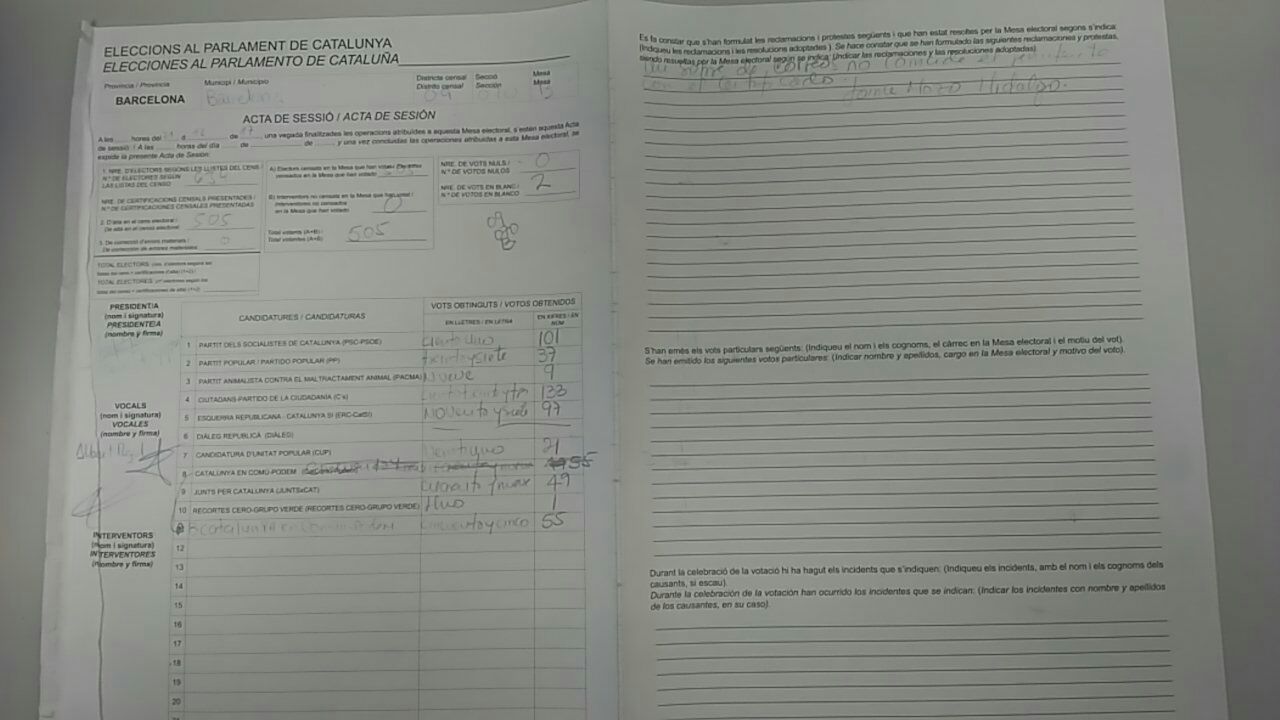 ELECCIONS AL PARLAMENT DE CATALUNYA
ELECCIONES AL PARLAMENTO DE CATALUÑA
Província / Provincia
Municipi / Municipio
Districte censal
Distrito censal
Secció
Sección
Mesa
Mesa
BARCELONA
Barcelona
ACTA DE SESSIÓ / ACTA DE SESIÓN
A les hores del d de 17, una vegada finalitzades les operacions atribuïdes a aquesta Mesa electoral, s'estén aquesta Acta
de sessió. / A las horas del día de de y una vez concluidas las operaciones atribuidas a esta Mesa electoral, se
expide la presente Acta de Sesión:
1. NRE. D'ELECTORS SEGONS LES LLISTES DEL CENS /
N.º DE ELECTORES SEGÚN
LAS LISTAS DEL CENSO
NRE. DE CERTIFICACIONS CENSALS PRESENTADES /
N.º DE CERTIFICACIONES CENSALES PRESENTADAS
2. D'alta en el cens electoral /
De alta en el censo electoral
505
3. De correcció d'errors materials /
De corrección de errores materiales
0
TOTAL ELECTORS
TOTAL ELECTORES
A) Electors censats en la Mesa que han votat / Electores
censados en la Mesa que han votado
B) Interventors no censats en la Mesa que han votat /
Interventores no censados
en la Mesa que han votado
0
Total votants (A+B) /
Total votantes (A+B)
505
NRE. DE VOTS NULS /
N.º DE VOTOS NULOS
0
NRE. DE VOTS EN BLANC /
N.º DE VOTOS EN BLANCO
2
PRESIDENT/A
(nom i signatura)
PRESIDENTE/A
(nombre y firma)
VOCALS
(nom i signatura)
VOCALES
(nombre y firma)
INTERVENTORS
(nom i signatura)
INTERVENTORES
(nombre y firma)
CANDIDATURES / CANDIDATURAS
VOTS OBTINGUTS / VOTOS OBTENIDOS
EN LLETRES / EN LETRA
EN XIFRES / EN NÚM
1 PARTIT DELS SOCIALISTES DE CATALUNYA (PSC-PSOE) Ciento uno 101
2 PARTIT POPULAR / PARTIDO POPULAR (PP) treintaysiete 37
3 PARTIT ANIMALISTA CONTRA EL MALTRACTAMENT ANIMAL (PACMA) Nueve 9
4 CIUTADANS-PARTIDO DE LA CIUDADANÍA (C's) 133
5 ESQUERRA REPUBLICANA - CATALUNYA SÍ (ERC-CatSí) 97
6 DIÀLEG REPUBLICÀ (DIÀLEG)
7 CANDIDATURA D'UNITAT POPULAR (CUP) Veintiuno 21
8 CATALUNYA EN COMÚ-PODEM 55
9 JUNTS PER CATALUNYA (JUNTSxCAT) 49
10 RECORTES CERO-GRUPO VERDE (RECORTES CERO-GRUPO VERDE) Uno 1
Catalunya en Comú Podem Cincuentaycinco 55
12
13
14
15
16
17
18
19
20
Es fa constar que s'han formulat les reclamacions i protestes següents i que han estat resoltes per la Mesa electoral segons s'indica:
(Indiqueu les reclamacions i les resolucions adoptades). Se hace constar que se han formulado las siguientes reclamaciones y protestas,
siendo resueltas por la Mesa electoral según se indica: (Indicar las reclamaciones y las resoluciones adoptadas).
de correos no coincide el
Jaime Mozo Hidalgo.
S'han emès els vots particulars següents: (Indiqueu el nom i els cognoms, el càrrec en la Mesa electoral i el motiu del vot).
Se han emitido los siguientes votos particulares: (Indicar nombre y apellidos, cargo en la Mesa electoral y motivo del voto).
Durant la celebració de la votació hi ha hagut els incidents que s'indiquen: (Indiqueu els incidents, amb el nom i els cognoms dels
causants, si escau).
Durante la celebración de la votación han ocurrido los incidentes que se indican: (Indicar los incidentes con nombre y apellidos
de los causantes, en su caso).